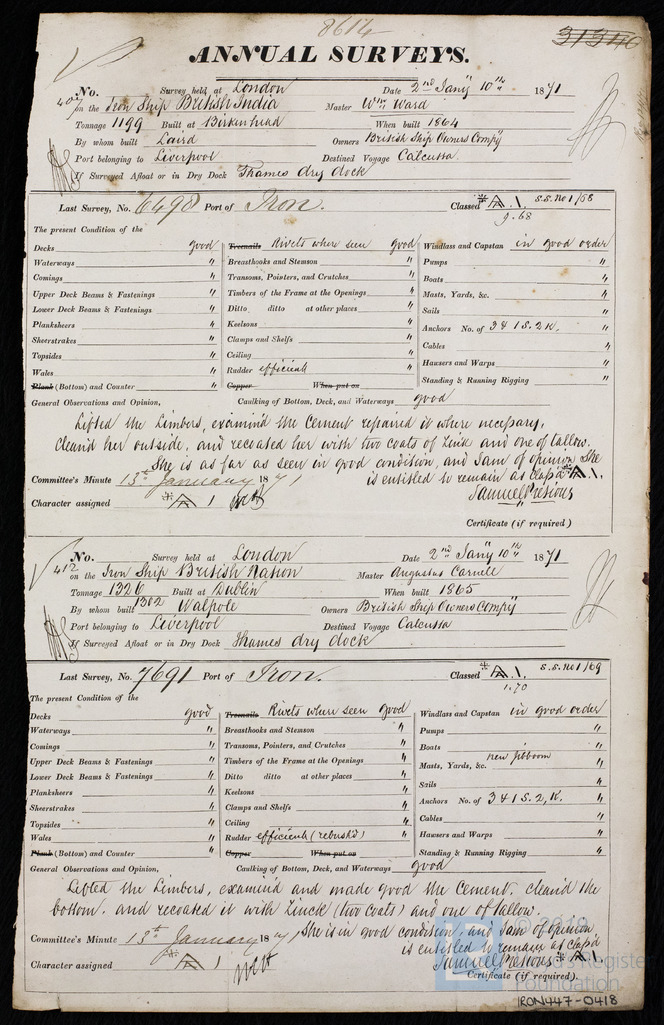 8614
31346
ANNUAL SURVEYS.
No. 407 Survey held at London Date 2nd Jany 10th 1871
on the Iron Ship British India Master Wm Ward
Tonnage 1199 Built at Birkenhead When built 1864
By whom built Laird Owners British Ship Owners Compy
Port belonging to Liverpool Destined Voyage Calcutta
If Surveyed Afloat or in Dry Dock Thames dry dock
Last Survey, No. 6498 Port of Iron. Classed *A.1. S.S. No 1/68
9.68
The present Condition of the
Decks good Treenails Rivets where seen good Windlass and Capstan in good order
Waterways " Breasthooks and Stemson " Pumps "
Comings " Transoms, Pointers, and Crutches " Boats "
Upper Deck Beams & Fastenings " Timbers of the Frame at the Openings " Masts, Yards, &c. "
Lower Deck Beams & Fastenings " Ditto ditto at other places " Sails "
Planksheers " Keelsons " Anchors No. of 3 & 1 S. 2 K. "
Sheerstrakes " Clamps and Shelfs " Cables "
Topsides " Ceiling " Hausers and Warps "
Wales " Rudder efficient Standing & Running Rigging "
Plank (Bottom) and Counter " Copper When put on
General Observations and Opinion, Caulking of Bottom, Deck, and Waterways good
Lifted the Limbers, examind the Cement repaired it where necessary,
cleand her outside, and recoated her with two coats of Zinc and one of tallow.
She is as far as seen in good condition, and I am of opinion She
is entitled to remain as class'd *A.1.
Committee's Minute 13th January 1871
Samuel Presious
Character assigned *A 1
Certificate (if required)
No. 412 Survey held at London Date 2nd Jany 10th 1871
on the Iron Ship British Nation Master Augustus Carnell
Tonnage 1326 Built at Dublin When built 1865
1302
By whom built Walpole Owners British Ship Owners Compy
Port belonging to Liverpool Destined Voyage Calcutta
If Surveyed Afloat or in Dry Dock Thames dry dock
Last Survey, No. 7691 Port of Iron. Classed *A.1. S.S. No 1/69
1.70
The present Condition of the
Decks good Treenails Rivets where seen good Windlass and Capstan in good order
Waterways " Breasthooks and Stemson " Pumps "
Comings " Transoms, Pointers, and Crutches " Boats "
Upper Deck Beams & Fastenings " Timbers of the Frame at the Openings " Masts, Yards, &c. new jibboom "
Lower Deck Beams & Fastenings " Ditto ditto at other places " Sails "
Planksheers " Keelsons " Anchors No. of 3 & 1 S. 2, K. "
Sheerstrakes " Clamps and Shelfs " Cables "
Topsides " Ceiling " Hausers and Warps "
Wales " Rudder efficient (rebush'd) Standing & Running Rigging "
Plank (Bottom) and Counter " Copper When put on
General Observations and Opinion, Caulking of Bottom, Deck, and Waterways good
Lifted the Limbers, examind and made good the Cement. cleand the
bottom, and recoated it with Zinck (two coats) and one of tallow.
She is in good condition, and I am of opinion
is entitled to remain as class'd
Committee's Minute 13th January 1871
Samuel Presious *A.1.
Character assigned *A 1
Certificate (if required).
© 2019
Lloyd's Register
Foundation
IRON447-0418